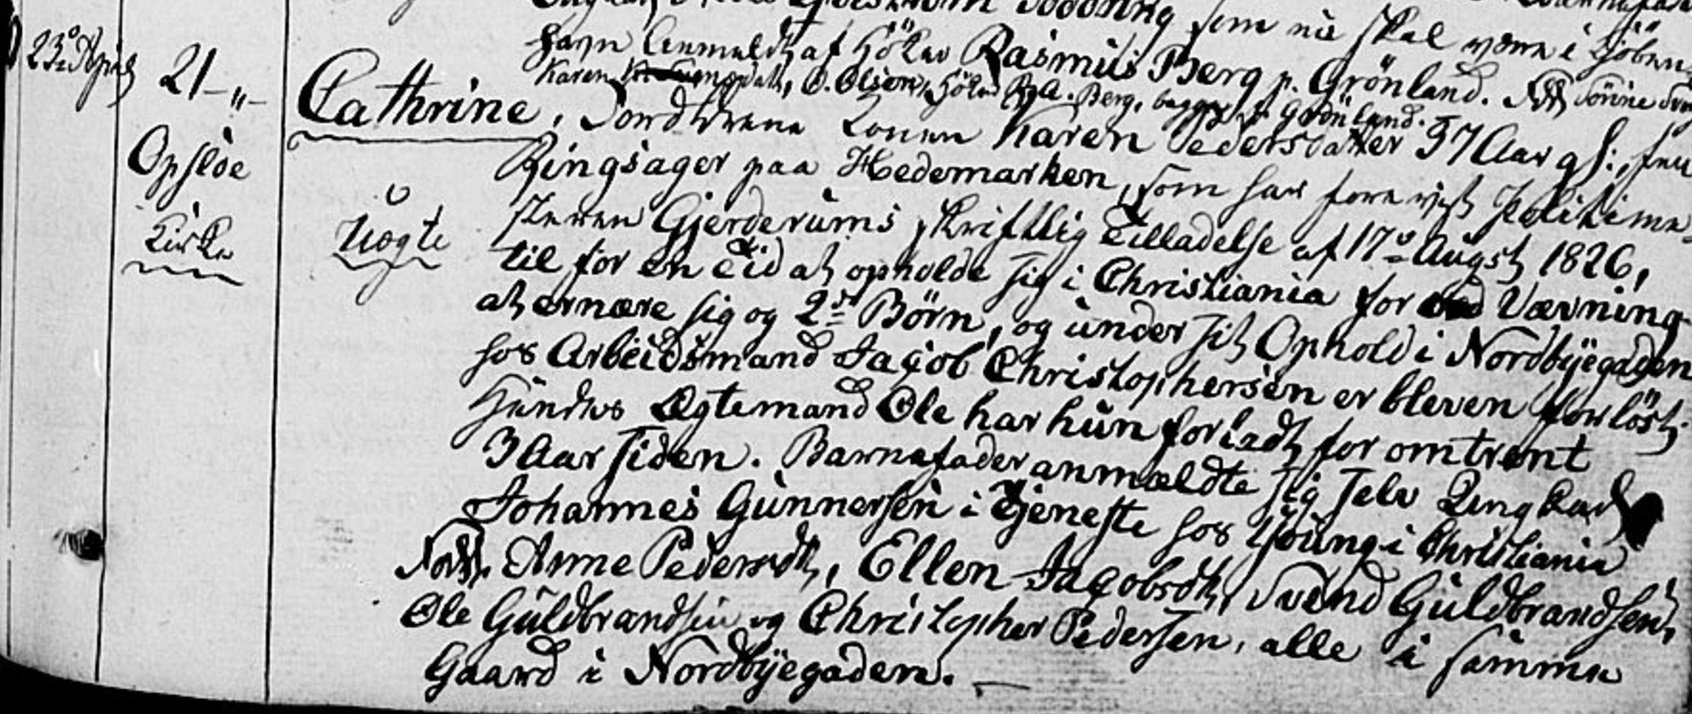 som nu skal være i Kjöben
havn anmeldt af Höker Rasmus Berg p. Grönland.
Karen O. Olsen, Höker R. A. Berg, begge p. Grönland.
23de April 21 - " - Cathrine, Jordbrene Konen Karen Pedersdatter 37 Aar gl:, fra
Opsloe Ringsager paa Hedemarken, som har foreviist Politime-
Kirke Uægte steren Gjerderums skriftlig Tilladelse af 17de Augst 1826,
til for en Tid at opholde sig i Christiania for ved Væverning
at ernære sig og 2de Börn, og under sit Ophold i Nordbyegaden
hos Arbeidsmand Jacob Christophersen er bleven forlöst;
Hendes Ægtemand Ole har hun forladt for omtrent
3 Aar siden. Barnefader anmældte sig selv Ungkarl
Johannes Gunnersen i Tjeneste hos Young i Christiania
Fadd. Anne Pedersdt, Ellen Jacobsdt, Svend Guldbrandsen,
Ole Guldbrandsen og Christopher Pedersen, alle i samme
Gaard i Nordbyegaden.